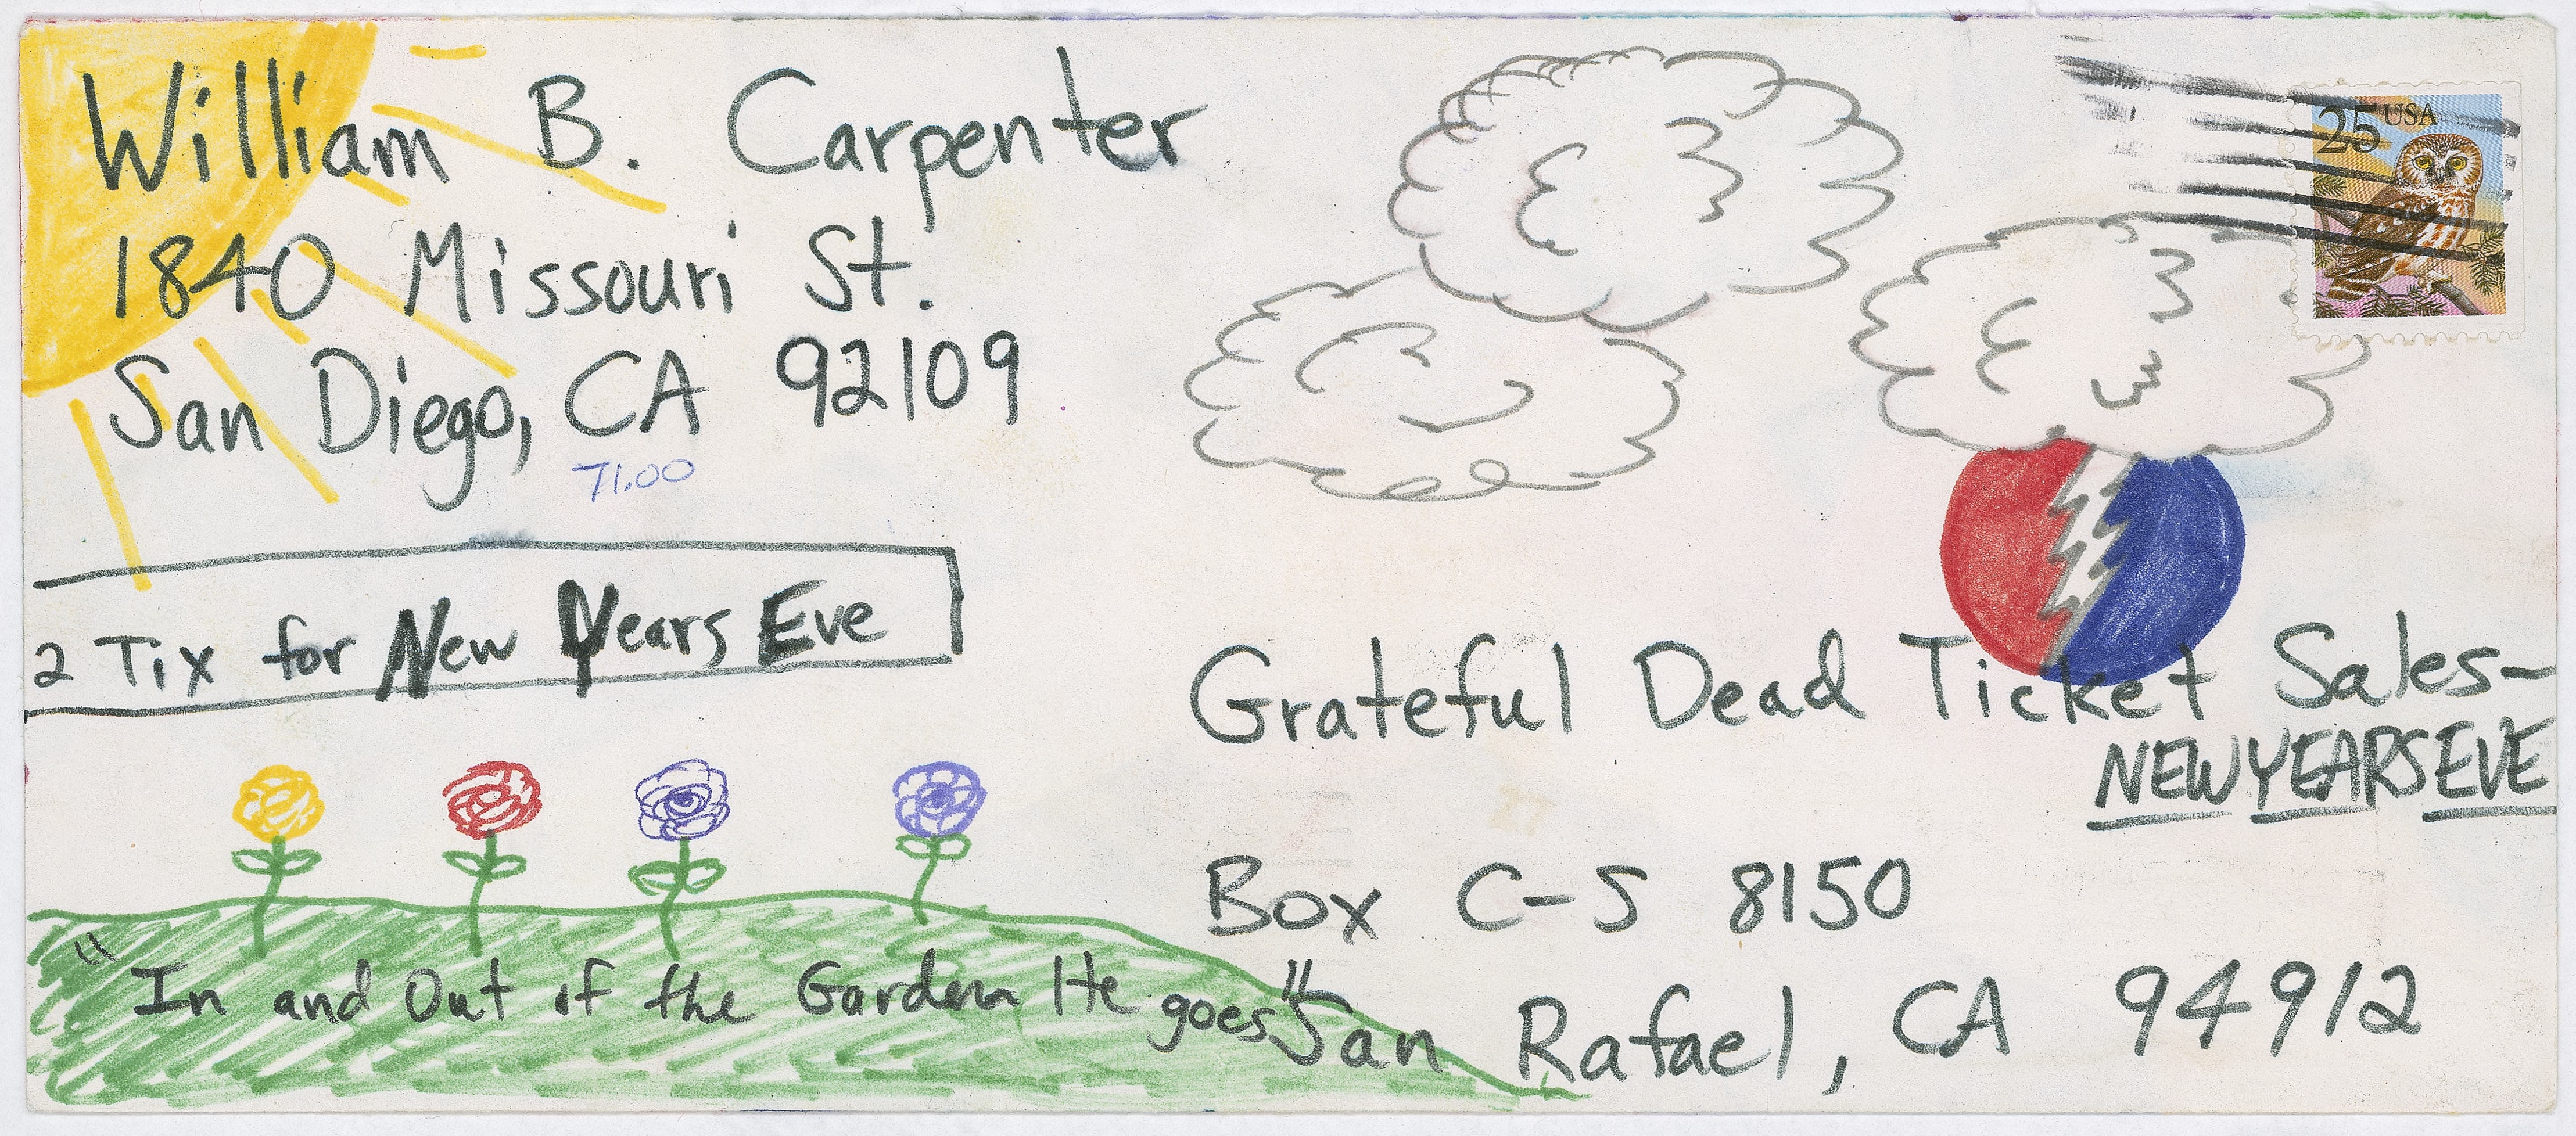 William B. Carpenter
1840 Missouri St.
San Diego, CA 92109
71.00
25 USA
2 Tix for New Years Eve
Grateful Dead Ticket Sales-
NEW YEARS EVE
Box C-S 8150
San Rafael, CA 94912
"In and Out of the Garden He goes"